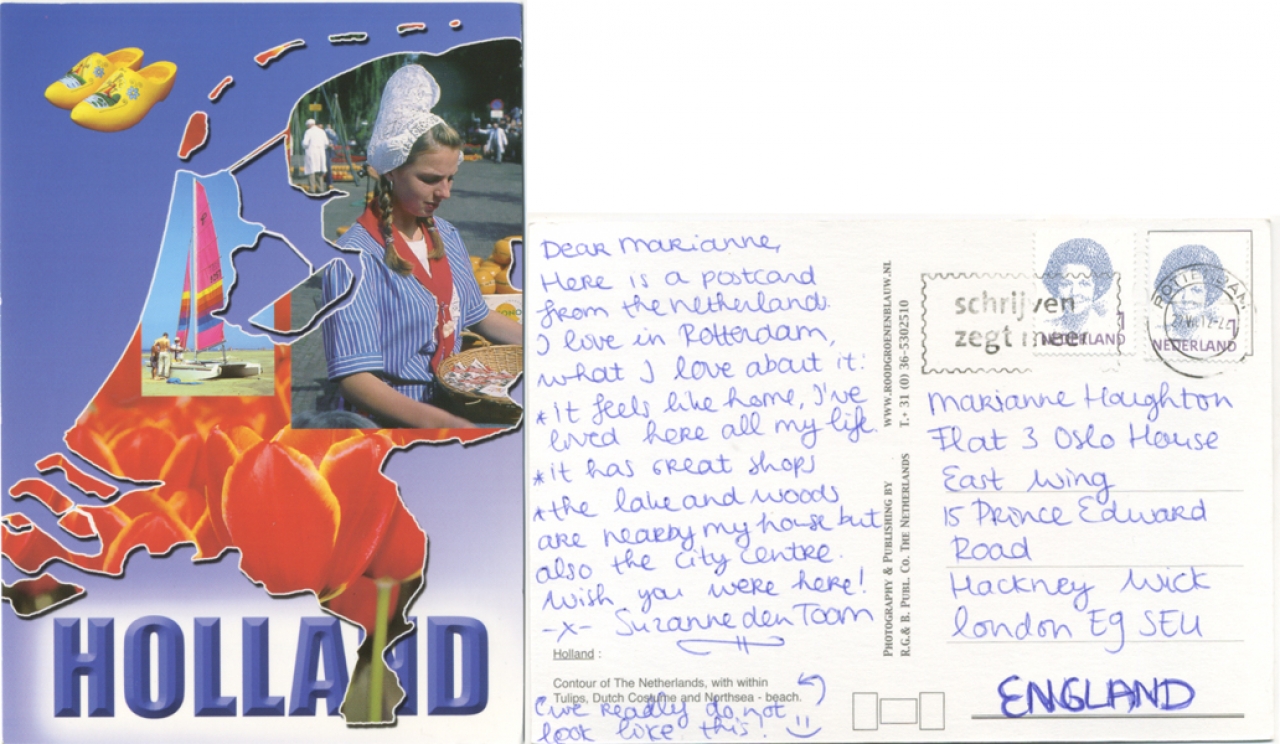 HOLLAND
Dear Marianne,
Here is a postcard
from the netherlands.
I love in Rotterdam,
what I love about it:
*it feels like home, I've
lived here all my life.
*it has great shops
*the lake and woods
are nearby my house but
also the city centre.
Wish you were here!
-x- Suzanne den Toom
Holland :
Contour of The Netherlands, with within
Tulips, Dutch Costume and Northsea - beach.
(we really do not
look like this!
PHOTOGRAPHY & PUBLISHING BY WWW.ROODGROENENBLAUW.NL
R.G.& B. PUBL. CO. THE NETHERLANDS T.+ 31 (0) 36-5302510
schrijven
zegt meer
NEDERLAND
NEDERLAND
ROTTERDAM
Marianne Haughton
Flat 3 Oslo House
East Wing
15 Prince Edward
Road
Hackney Wick
London E9 5EU
ENGLAND